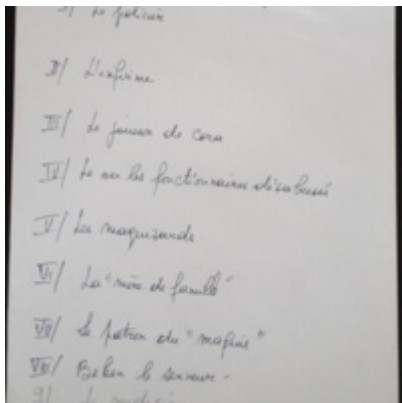 I/ Le policier
II/ L'infirme
III/ Le joueur de cora
IV/ Le ou les fonctionnaires désabusés
V/ Les maquisards
VI/ La "mère de famille"
VII/ Le patron du "maquis"
VIII/ Beken le serveur -
9/ Le